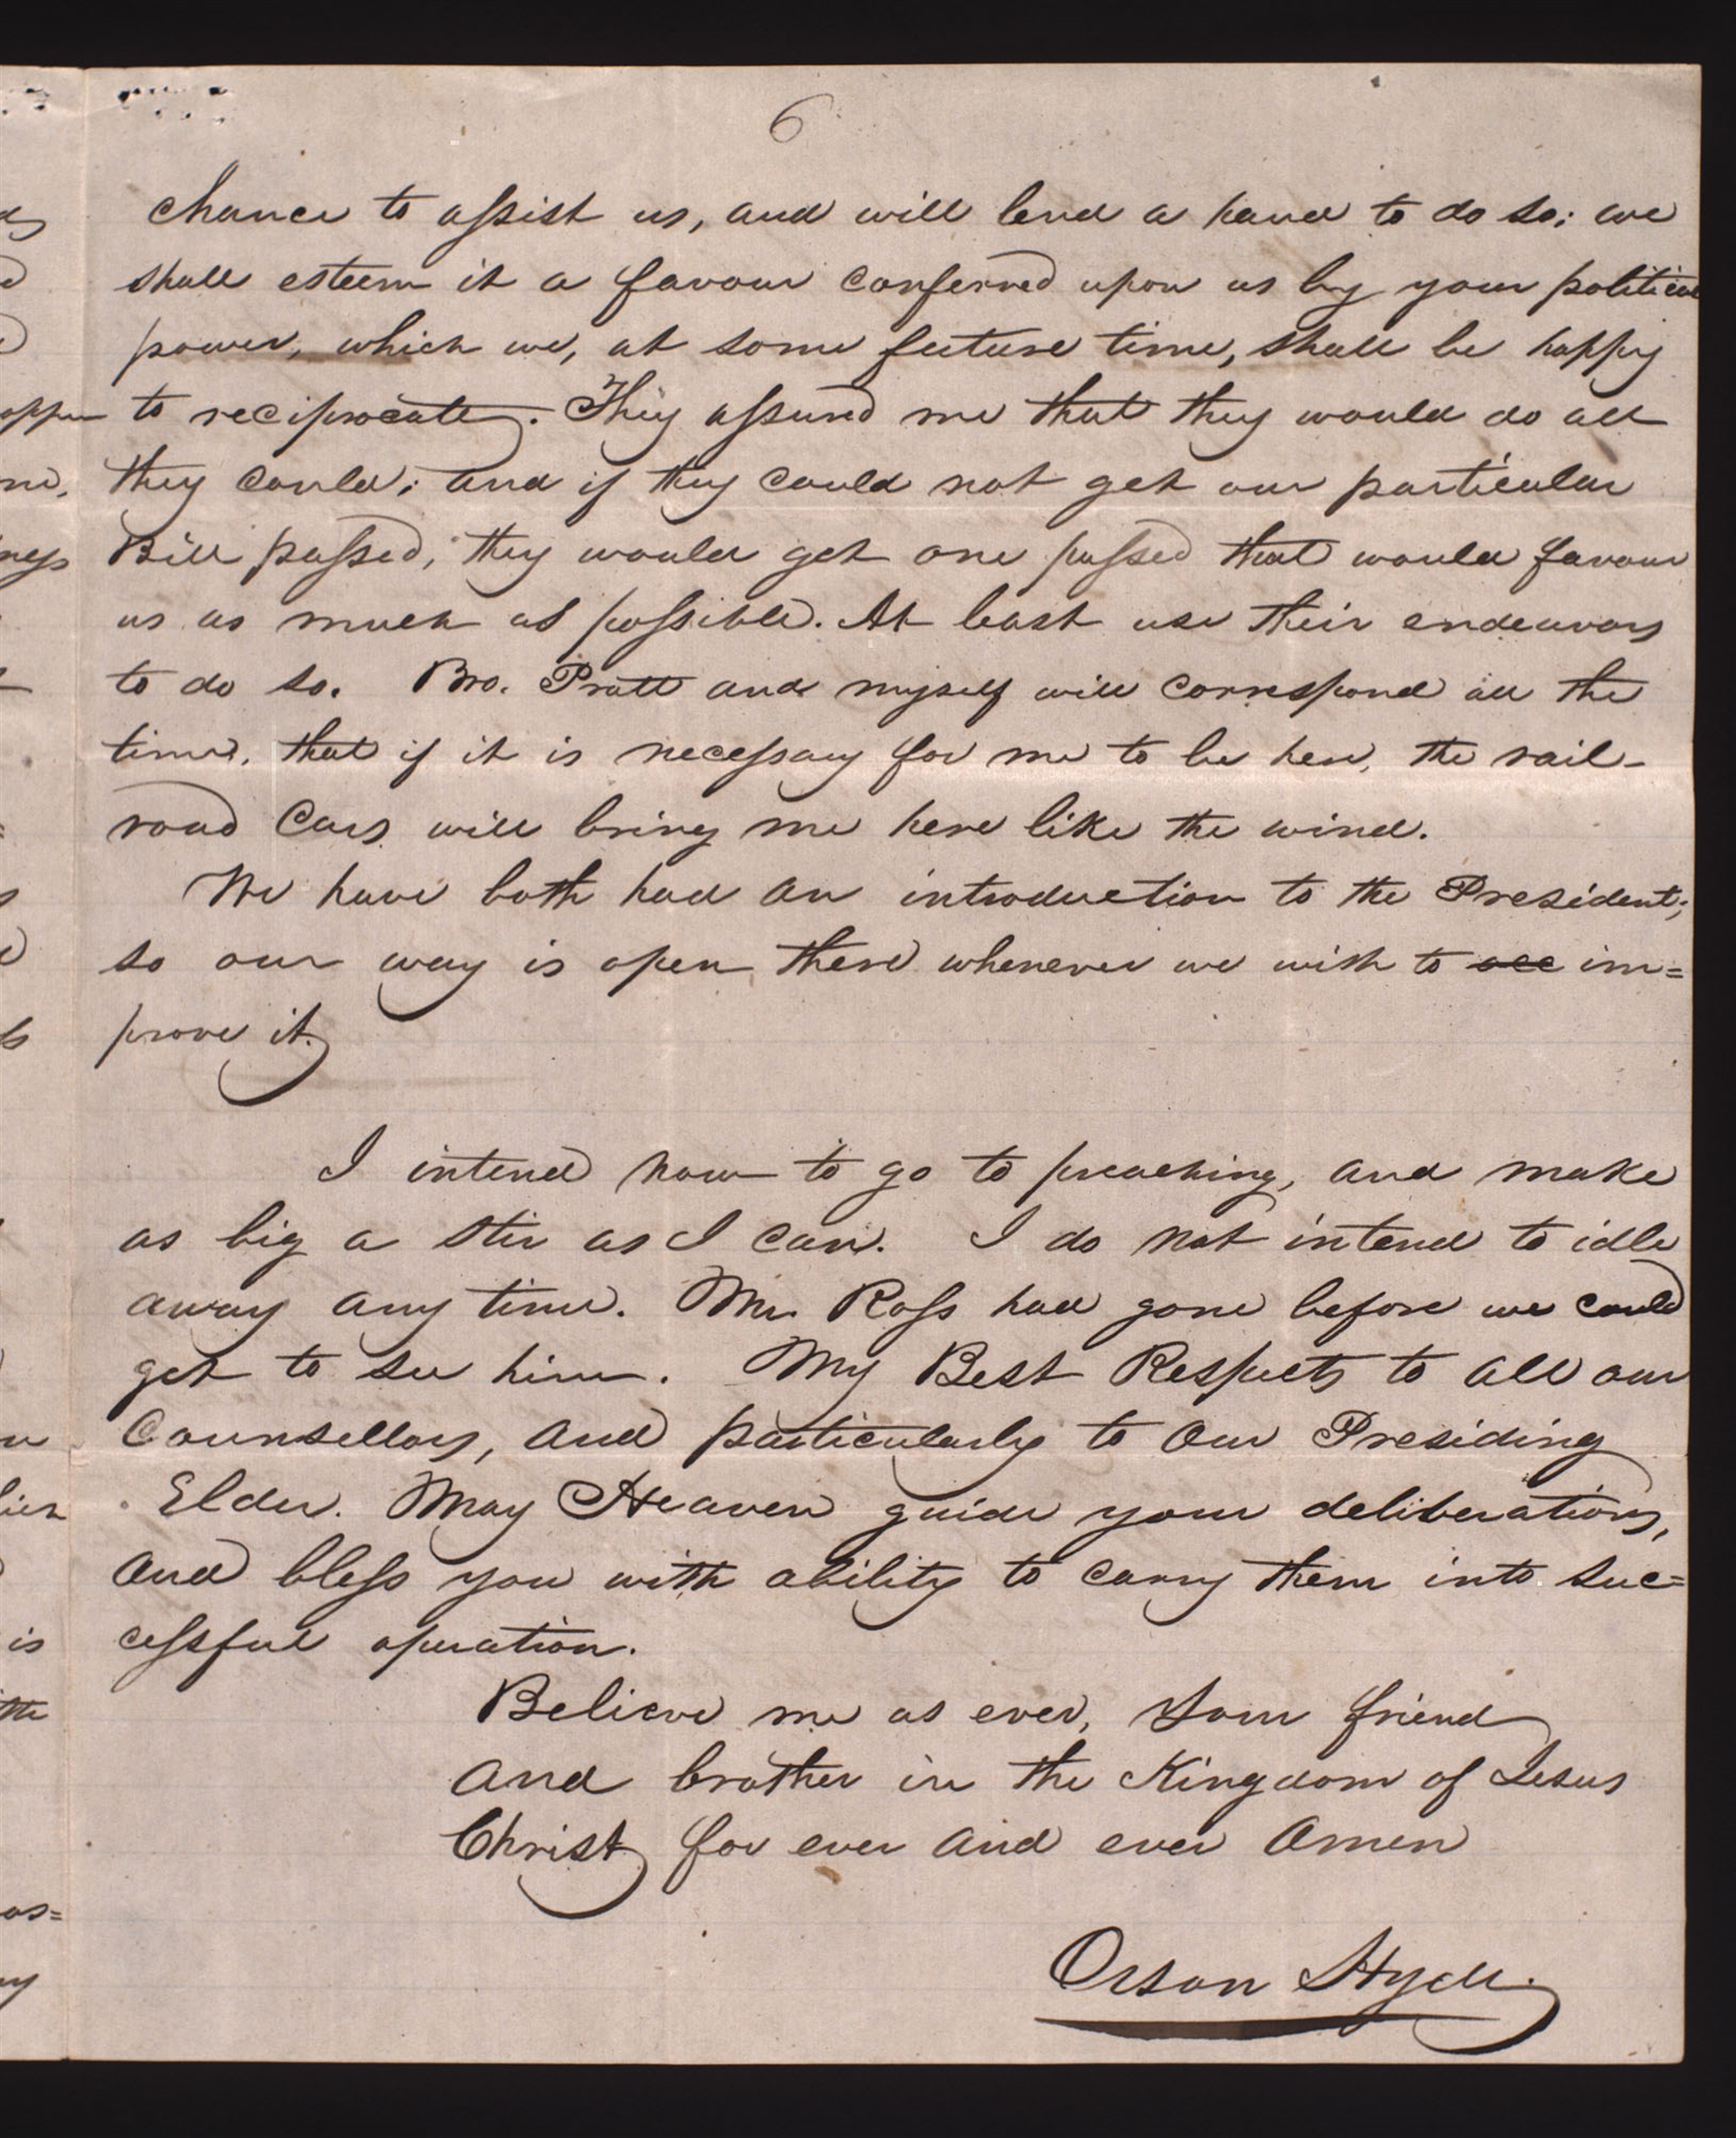 6
chance to assist us, and will lend a hand to do so; we
shall esteem it a favour conferred upon us by your political
power, which we, at some future time, shall be happy
to reciprocate. They assured me that they would do all
they could; and if they could not get our particular
Bill passed, they would get one passed that would favour
us as much as possible. At least use their endeavors
to do so. Bro. Pratt and myself will correspond all the
time, that if it is necessary for me to be here, the rail-
road Cars will bring me here like the wind.
We have both had an introduction to the President;
so our way is open there whenever we wish to im=
prove it.
I intend now to go to preaching, and make
as big a stir as I can. I do not intend to idle
away any time. Mr. Ross had gone before we could
get to see him. My Best Respects to all our
Counsellors, and particularly to Our Presiding
Elder. May Heaven guide your deliberations,
and bless you with ability to carry them into suc=
cessful operation.
Believe me as ever, Your friend
and brother in the Kingdom of Jesus
Christ for ever and ever Amen
Orson Hyde.